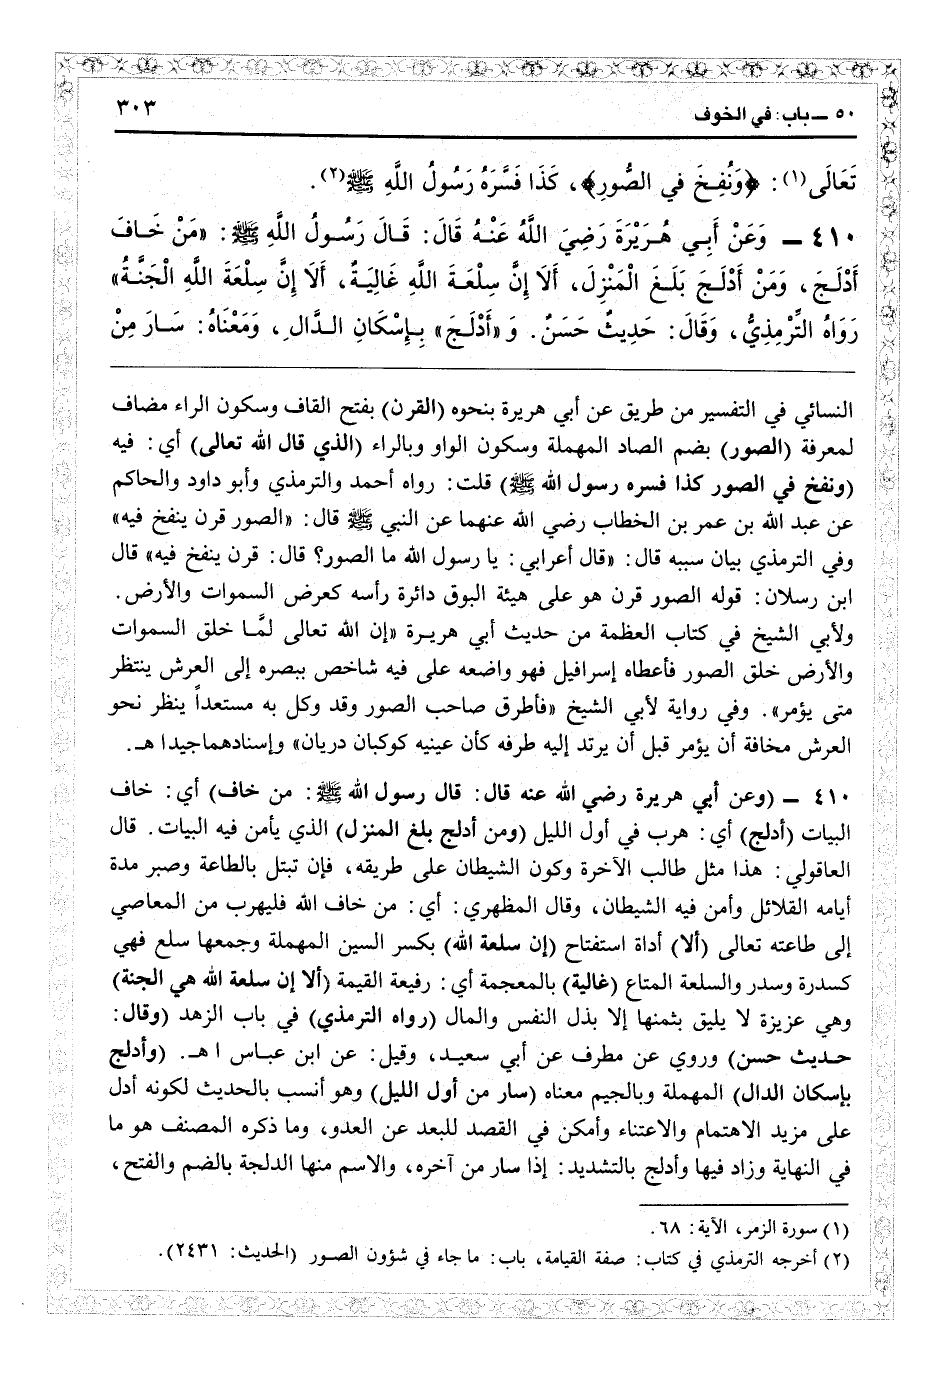 ٥٠ ـ باب: في الخوف ٣٠٣
تَعَالَى(١): ﴿وَنُفِخَ في الصُّورِ﴾، كَذَا فَسَّرَهُ رَسُولُ اللَّهِ ﷺ(٢).
٤١٠ ـ وَعَنْ أَبِي هُرَيْرَةَ رَضِيَ اللَّهُ عَنْهُ قَالَ: قَالَ رَسُولُ اللَّهِ ﷺ: «مَنْ خَافَ
أَدْلَجَ، وَمَنْ أَدْلَجَ بَلَغَ الْمَنْزِلَ، أَلَا إِنَّ سِلْعَةَ اللَّهِ غَالِيَةٌ، أَلَا إِنَّ سِلْعَةَ اللَّهِ الْجَنَّةُ»
رَوَاهُ التِّرْمِذِيُّ، وَقَالَ: حَدِيثٌ حَسَنٌ. وَ «أَدْلَجَ» بِإِسْكَانِ الدَّالِ، وَمَعْنَاهُ: سَارَ مِنْ
النسائي في التفسير من طريق عن أبي هريرة بنحوه (القرن) بفتح القاف وسكون الراء مضاف
لمعرفة (الصور) بضم الصاد المهملة وسكون الواو وبالراء (الذي قال الله تعالى) أي: فيه
(ونفخ في الصور كذا فسره رسول الله ﷺ) قلت: رواه أحمد والترمذي وأبو داود والحاكم
عن عبد الله بن عمر بن الخطاب رضي الله عنهما عن النبي ﷺ قال: «الصور قرن ينفخ فيه»
وفي الترمذي بيان سببه قال: «قال أعرابي: يا رسول الله ما الصور؟ قال: قرن ينفخ فيه» قال
ابن رسلان: قوله الصور قرن هو على هيئة البوق دائرة رأسه كعرض السموات والأرض.
ولأبي الشيخ في كتاب العظمة من حديث أبي هريرة «إن الله تعالى لمَّا خلق السموات
والأرض خلق الصور فأعطاه إسرافيل فهو واضعه على فيه شاخص ببصره إلى العرش ينتظر
متى يؤمر». وفي رواية لأبي الشيخ «فأطرق صاحب الصور وقد وكل به مستعداً ينظر نحو
العرش مخافة أن يؤمر قبل أن يرتد إليه طرفه كأن عينيه كوكبان دريان» وإسنادهماجيدا هـ.
٤١٠ ـ (وعن أبي هريرة رضي الله عنه قال: قال رسول الله ﷺ: من خاف) أي: خاف
البيات (أدلج) أي: هرب في أول الليل (ومن أدلج بلغ المنزل) الذي يأمن فيه البيات. قال
العاقولي: هذا مثل طالب الآخرة وكون الشيطان على طريقه، فإن تبتل بالطاعة وصبر مدة
أيامه القلائل وأمن فيه الشيطان، وقال المظهري: أي: من خاف الله فليهرب من المعاصي
إلى طاعته تعالى (ألا) أداة استفتاح (إن سلعة الله) بكسر السين المهملة وجمعها سلع فهي
كسدرة وسدر والسلعة المتاع (غالية) بالمعجمة أي: رفيعة القيمة (ألا إن سلعة الله هي الجنة)
وهي عزيزة لا يليق بثمنها إلا بذل النفس والمال (رواه الترمذي) في باب الزهد (وقال:
حديث حسن) وروي عن مطرف عن أبي سعيد، وقيل: عن ابن عباس ا هـ. (وأدلج
بإسكان الدال) المهملة وبالجيم معناه (سار من أول الليل) وهو أنسب بالحديث لكونه أدل
على مزيد الاهتمام والاعتناء وأمكن في القصد للبعد عن العدو، وما ذكره المصنف هو ما
في النهاية وزاد فيها وأدلج بالتشديد: إذا سار من آخره، والاسم منها الدلجة بالضم والفتح،
(١) سورة الزمر، الآية: ٦٨.
(٢) أخرجه الترمذي في كتاب: صفة القيامة، باب: ما جاء في شؤون الصور (الحديث: ٢٤٣١).